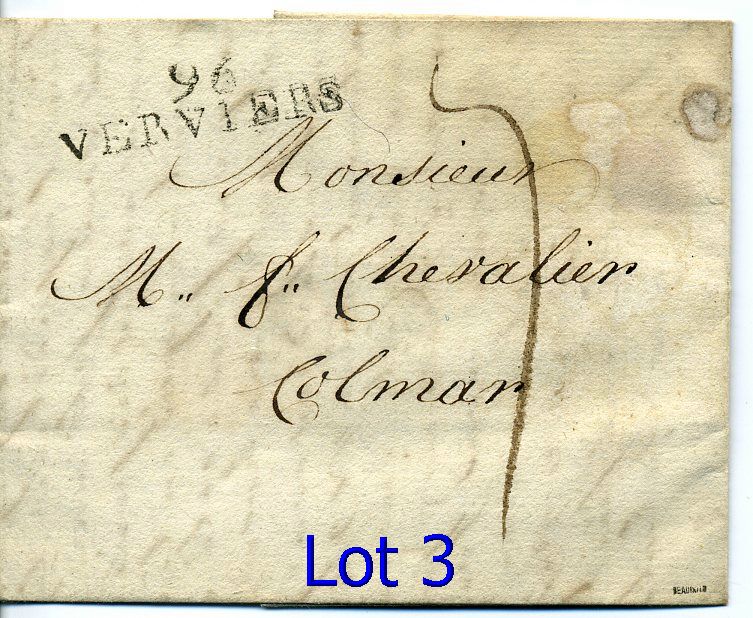 96
VERVIERS
Monsieur
M.. f.. Chevalier
Colmar
7
Lot 3